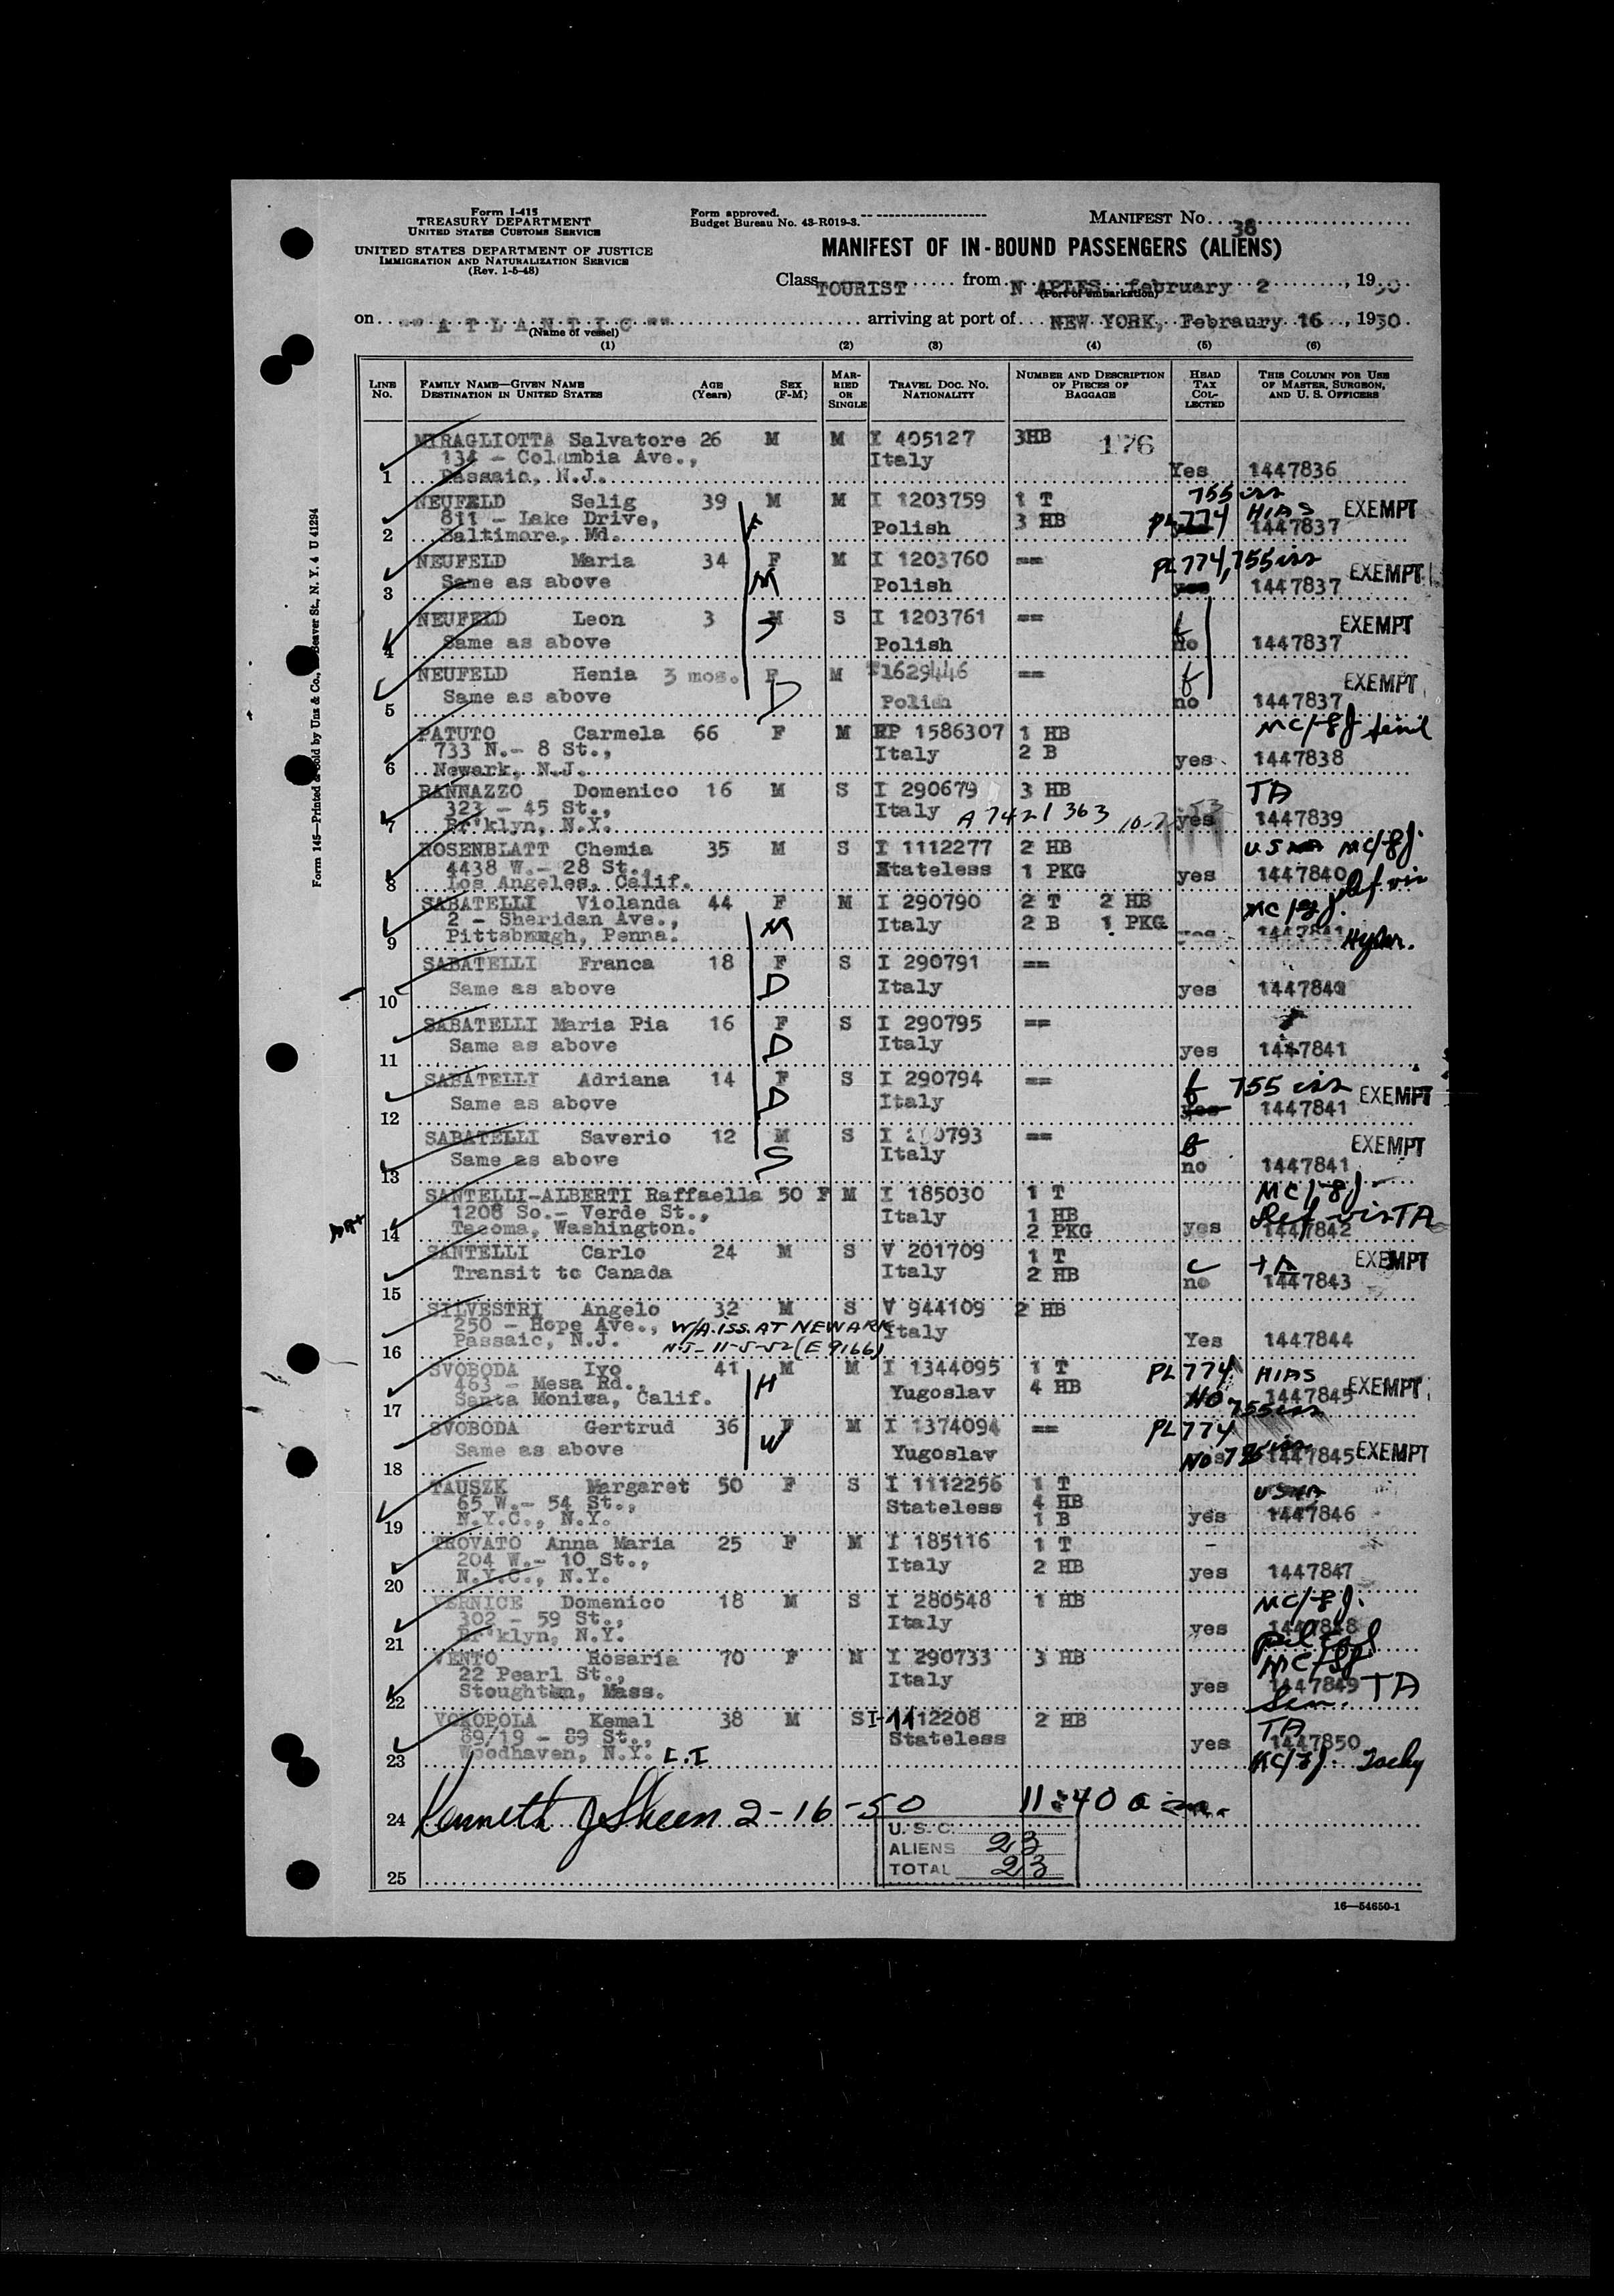 Form I-415
TREASURY DEPARTMENT
UNITED STATES CUSTOMS SERVICE
UNITED STATES DEPARTMENT OF JUSTICE
IMMIGRATION AND NATURALIZATION SERVICE
(Rev. 1-5-48)
Form approved.
Budget Bureau No. 43-R019-3.
MANIFEST NO. 38
MANIFEST OF IN-BOUND PASSENGERS (ALIENS)
Class TOURIST from N APLES february 2, 19
(Port of embarkation)
on "" A T L A N T I C "" arriving at port of NEW YORK, Febraury 16, 1950.
(Name of vessel)
(1) (2) (3) (4) (5) (6)
LINE NO. FAMILY NAME—GIVEN NAME DESTINATION IN UNITED STATES AGE (Years) SEX (F-M) MARRIED OR SINGLE TRAVEL DOC. NO. NATIONALITY NUMBER AND DESCRIPTION OF PIECES OF BAGGAGE HEAD TAX COLLECTED THIS COLUMN FOR USE OF MASTER, SURGEON, AND U. S. OFFICERS
MIRAGLIOTTA Salvatore 26 M M I 405127 3HB 176
134 - Columbia Ave., Italy
1 Passaic, N.J. Yes 1447836
NEUFELD Selig 39 M M I 1203759 1 T 755 iss EXEMPT
811 - Lake Drive, F Polish 3 HB PL 774 HIAS
2 Baltimore, Md. 1447837
NEUFELD Maria 34 F M I 1203760 == PL 774, 755 iss EXEMPT
3 Same as above M Polish yes 1447837
NEUFELD Leon 3 M S I 1203761 == EXEMPT
4 Same as above S Polish no 1447837
NEUFELD Henia 3 mos. F M 1629446 == EXEMPT
5 Same as above D Polish no 1447837
PATUTO Carmela 66 F M RP 1586307 1 HB MC/
733 N.- 8 St., Italy 2 B
6 Newark, N.J. yes 1447838
RANNAZZO Domenico 16 M S I 290679 3 HB TA
323 - 45 St., Italy A 7421363
7 Br'klyn, N.Y. yes 1447839
ROSENBLATT Chemia 35 M S I 1112277 2 HB
4438 W.- 28 St., Stateless 1 PKG
8 Los Angeles, Calif. yes 1447840
SABATELLI Violanda 44 F M I 290790 2 T 2 HB
2 - Sheridan Ave., M Italy 2 B 1 PKG
9 Pittsburgh, Penna. yes 1447841
SABATELLI Franca 18 F S I 290791 ==
10 Same as above D Italy yes 1447841
SABATELLI Maria Pia 16 F S I 290795 ==
11 Same as above D Italy yes 1447841
SABATELLI Adriana 14 F S I 290794 == 755 iss EXEMPT
12 Same as above D Italy yes 1447841
SABATELLI Saverio 12 M S I 290793 == EXEMPT
13 Same as above S Italy no 1447841
SANTELLI-ALBERTI Raffaella 50 F M I 185030 1 T
1208 So.- Verde St., Italy 1 HB TA
14 Tacoma, Washington. 2 PKG yes 1447842
SANTELLI Carlo 24 M S V 201709 1 T EXEMPT
15 Transit to Canada Italy 2 HB no 1447843
SILVESTRI Angelo 32 M S V 944109 2 HB
250 - Hope Ave., W/A. iss. AT NEWARK Italy
16 Passaic, N.J. N.J- 11-5-52 (E 9166) Yes 1447844
SVOBODA Ivo 41 M M I 1344095 1 T PL 774 HIAS
463 - Mesa Rd., H Yugoslav 4 HB EXEMPT
17 Santa Monica, Calif. NO 1447845
755 iss
SVOBODA Gertrud 36 F M I 1374094 == PL 774
18 Same as above W Yugoslav No 1447845 EXEMPT
TAUSZK Margaret 50 F S I 1112256 1 T
65 W.- 54 St., Stateless 4 HB
19 N.Y.C., N.Y. 1 B yes 1447846
TROVATO Anna Maria 25 F M I 185116 1 T
204 W.- 10 St., Italy 2 HB
20 N.Y.C., N.Y. yes 1447847
VERNICE Domenico 18 M S I 280548 1 HB
302 - 59 St., Italy
21 Br'klyn, N.Y. yes 1447848
VENTO Rosaria 70 F M I 290733 3 HB
22 Pearl St., Italy
22 Stoughton, Mass. yes 1447849 Sen. TA
VOKOPOLA Kemal 38 M S I-1112208 2 HB TA
89/19 - 89 St., Stateless
23 Woodhaven, N.Y. L.I yes 1447850
24 Kenneth J Skeen 2-16-50 11:40 a.m.
U. S. C.
ALIENS 23
25 TOTAL 23
16—54650-1